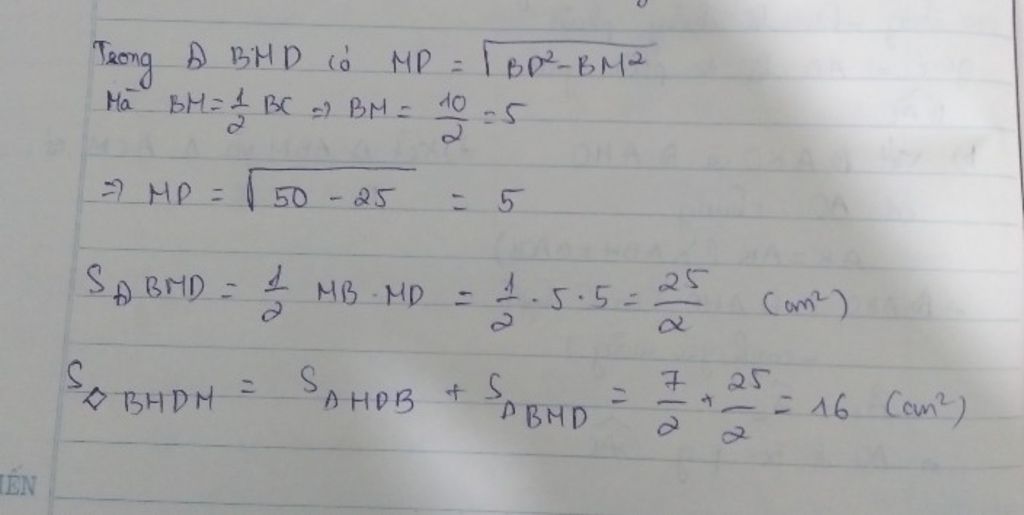 Trong Δ BMD có MD = √BD²-BM²
Mà BM = 1/2 BC => BM = 10/2 = 5
=> MD = √50 - 25 = 5
SΔ BMD = 1/2 MB . MD = 1/2 . 5 . 5 = 25/2 (cm²)
S◇ BHDM = SΔHDB + SΔBMD = 7/2 + 25/2 = 16 (cm²)
IẾN